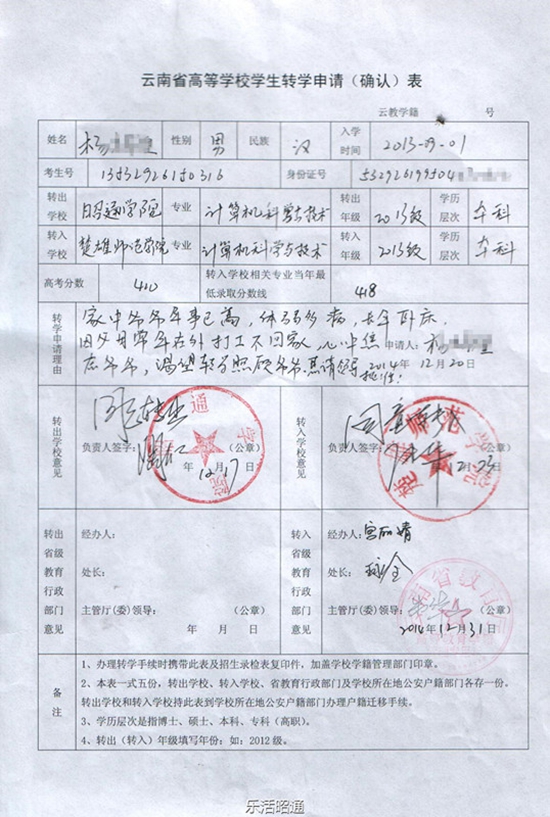 云南省高等学校学生转学申请（确认）表
云教学籍 号
姓名 杨 性别 男 民族 汉 入学时间 2013-09-01
考生号 身份证号
转出学校 昭通学院 专业 计算机科学与技术 转出年级 2013级 学历层次 本科
转入学校 楚雄师范学院 专业 计算机科学与技术 转入年级 2013级 学历层次 本科
高考分数 410 转入学校相关专业当年最低录取分数线 418
转学申请理由
家中爷爷年事已高，体弱多病，长年卧床
因父母常年在外打工不回家，心中焦 申请人：杨
虑爷爷，渴望转学照顾爷爷，恳请领导批准！ 2014年12月20日
转出学校意见 同意转出 负责人签字： （公章）
年12月17日
转入学校意见 同意 负责人签字： （公章）
12.25日
转出省级教育行政部门意见
经办人：
处长：
主管厅(委)领导： （公章）
年 月 日
转入省级教育行政部门意见
经办人：
处长：
主管厅(委)领导： （公章）
2014年12月31日
备注
1、办理转学手续时携带此表及招生录检表复印件，加盖学校学籍管理部门印章。
2、本表一式五份，转出学校、转入学校、省教育行政部门及学校所在地公安户籍部门各存一份。
转出学校和转入学校持此表到学校所在地公安户籍部门办理户籍迁移手续。
3、学历层次是指博士、硕士、本科、专科（高职）。
4、转出（转入）年级填写年份：如：2012级。
乐活昭通